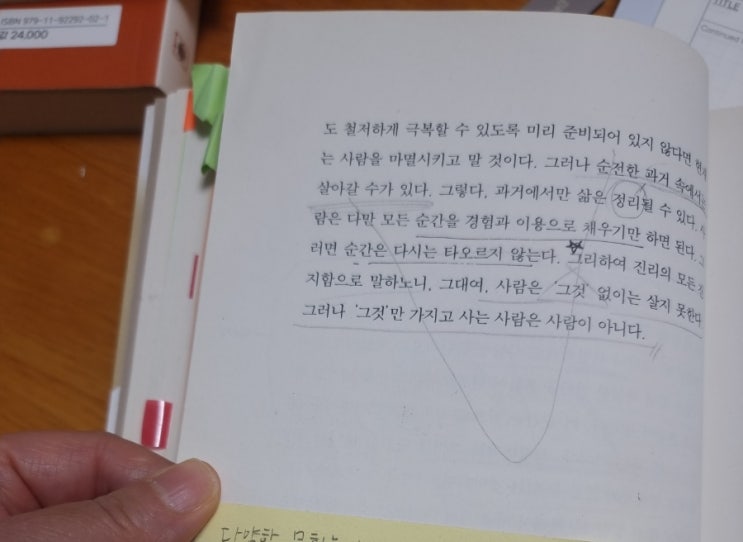 ISBN 979-11-92292-02-1
값 24,000
TITLE
Continued
도 철저하게 극복할 수 있도록 미리 준비되어 있지 않다면
는 사람을 마멸시키고 말 것이다. 그러나 순전한 과거 속에서는
살아갈 수가 있다. 그렇다, 과거에서만 삶은 정리될 수 있다.
람은 다만 모든 순간을 경험과 이용으로 채우기만 하면 된다. 그
러면 순간은 다시는 타오르지 않는다. 그리하여 진리의 모든 진
지함으로 말하노니, 그대여, 사람은 '그것' 없이는 살지 못한다.
그러나 '그것'만 가지고 사는 사람은 사람이 아니다.